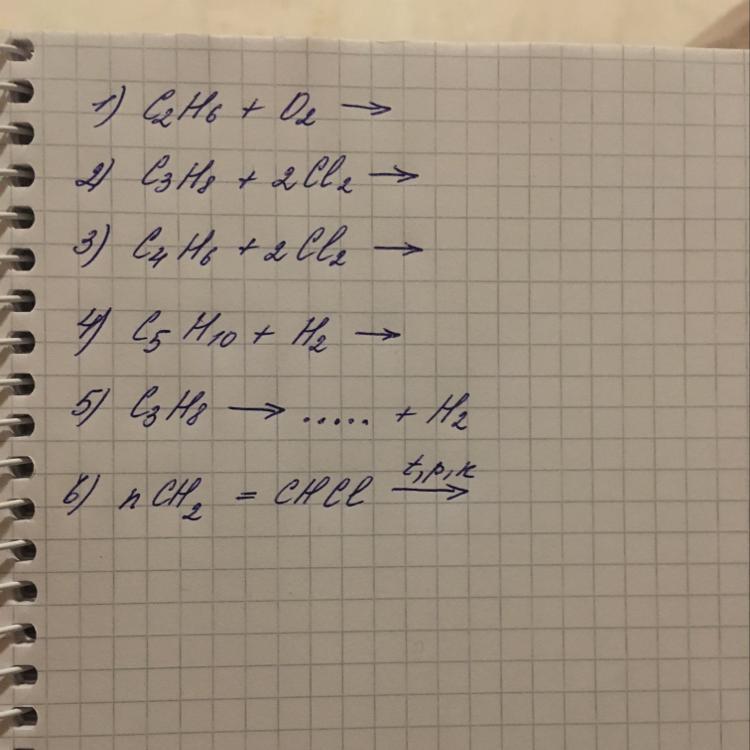 1) C₂H₆ + O₂ →
2) C₃H₈ + 2Cl₂ →
3) C₄H₆ + 2Cl₂ →
4) C₅H₁₀ + H₂ →
5) C₃H₈ → ..... + H₂
6) nCH₂ = CHCl t,p,к →